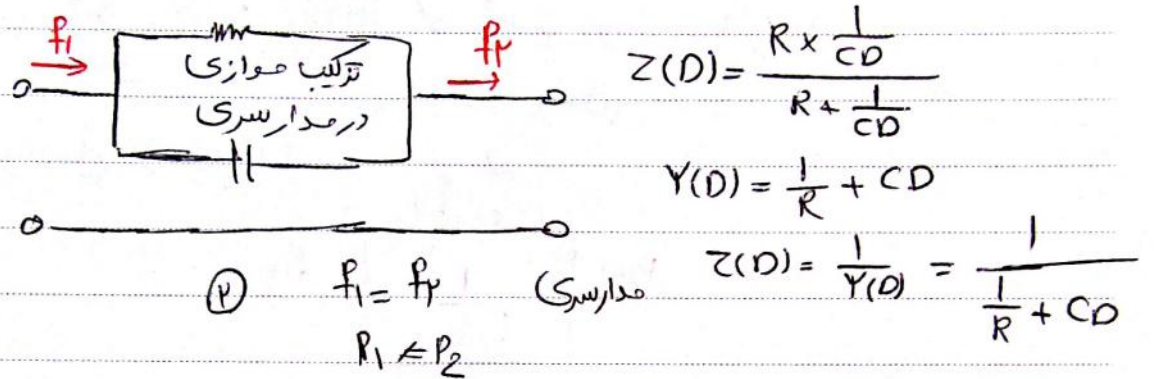 f₁
f₂
ترکیب موازی
در مدار سری
Z(D) = (R × 1/CD) / (R + 1/CD)
Y(D) = 1/R + CD
Z(D) = 1/Y(D) = 1 / (1/R + CD)
۲
f₁ = f₂ مدار سری
P₁ ≠ P₂